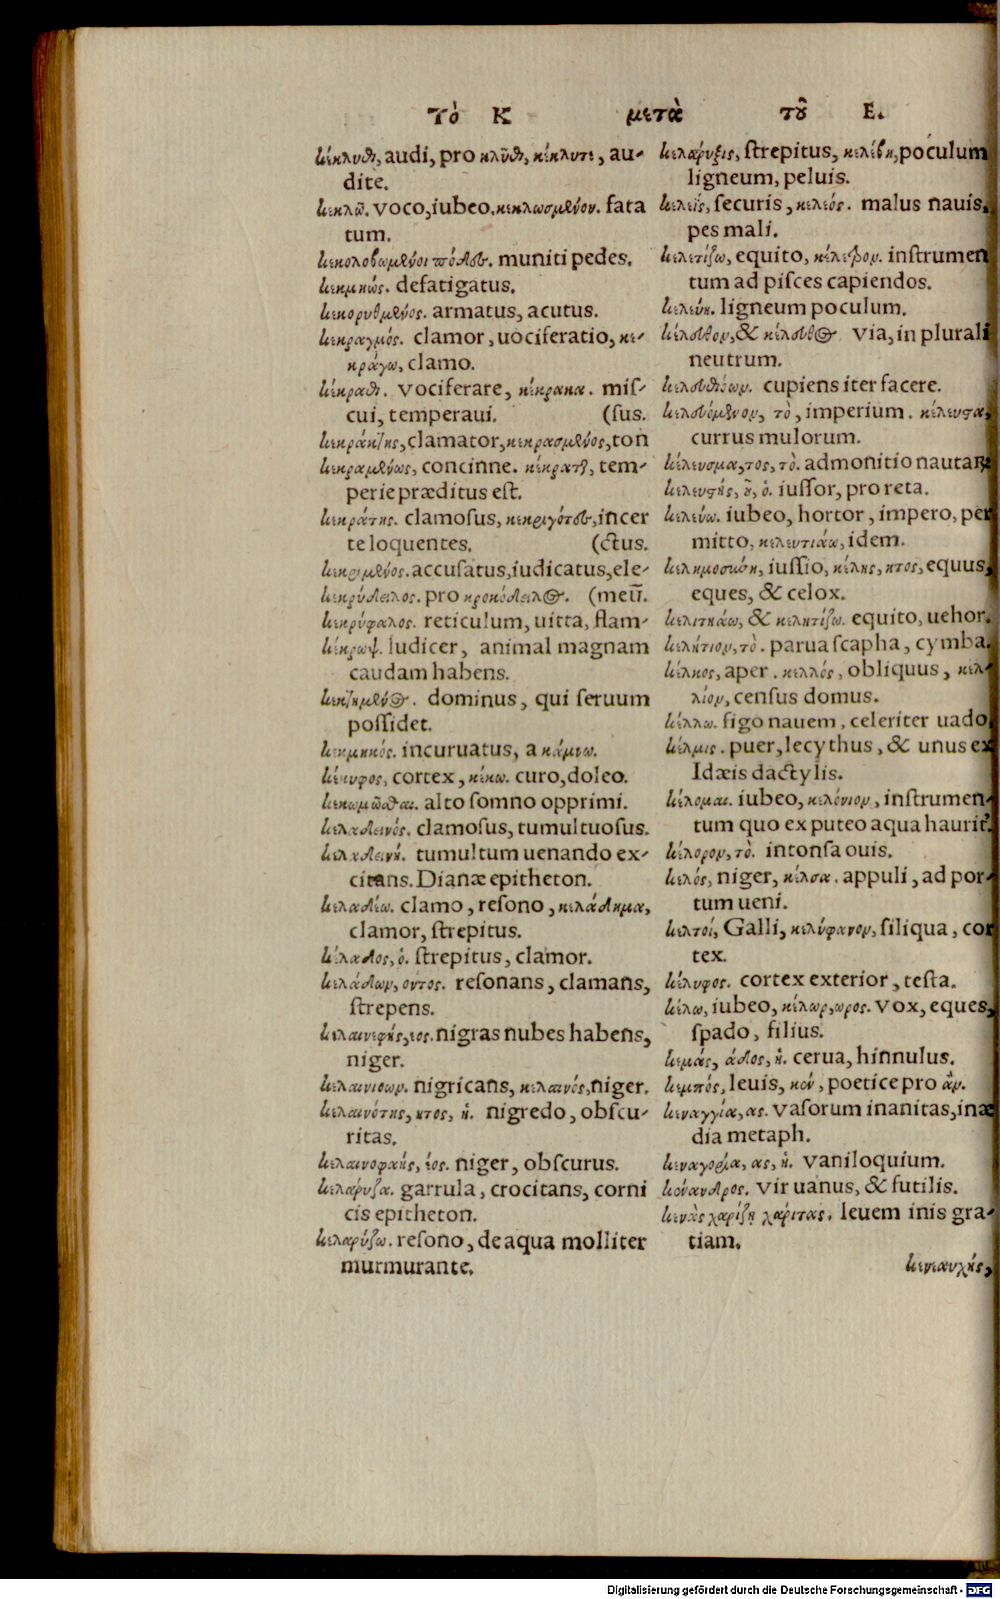 Τὸ Κ μετὰ τοῦ Ε.
κέκλυθι, audi, pro κλῦθι, κέκλυτε, au-
dite.
κεκλῶ. voco, iubeo. κεκλωσμένον. fata
tum.
κεκολοβωμένοι πόδες. muniti pedes.
κεκμηώς. defatigatus.
κεκορυθμένος. armatus, acutus.
κεκραγμός. clamor, uociferatio, κε-
κράγω, clamo.
κέκραθι. vociferare, κέκρακα. miſ-
cui, temperaui. (ſus.
κεκράκτης, clamator, κεκρασμένος, ton
κεκραμένως, concinne. κέκραται, tem-
perie præditus eſt.
κεκράτης. clamoſus, κεκριγότες, incer
te loquentes. (ctus.
κεκριμένος. accuſatus, iudicatus, ele-
κεκρύδειλος. pro κροκόδειλος. (meū.
κεκρύφαλος. reticulum, uitta, flam-
κέκρωψ. ludicer, animal magnam
caudam habens.
κεκτημένος. dominus, qui ſeruum
poſſidet.
κεκμηκός. incuruatus, a κάμνω.
κέκυφος, cortex, κέκω. curo, doleo.
κεκωμῶσθαι. alto ſomno opprimi.
κελαδεινός. clamoſus, tumultuoſus.
κελαδεινή. tumultum uenando ex-
citans. Dianæ epitheton.
κελαδέω. clamo, reſono, κελάδημα,
clamor, ſtrepitus.
κέλαδος, ὁ. ſtrepitus, clamor.
κελάδων, οντος. reſonans, clamans,
ſtrepens.
κελαινεφής, έος. nigras nubes habens,
niger.
κελαινιόων. nigricans, κελαινός, niger.
κελαινότης, ητος, ἡ. nigredo, obſcu-
ritas.
κελαινοφαής, έος. niger, obſcurus.
κελάρυζα. garrula, crocitans, corni
cis epitheton.
κελαρύζω. reſono, de aqua molliter
murmurante.
κελάρυξις, ſtrepitus, κελέβη, poculum
ligneum, peluis.
κελεΐς, ſecuris, κελεός. malus nauis,
pes mali.
κελετίζω, equito, κέλετρον. inſtrumen
tum ad piſces capiendos.
κελεύη. ligneum poculum.
κέλευθον, & κέλευθος via, in plurali
neutrum.
κελευθείων. cupiens iter facere.
κελευόμενον, τὸ, imperium. κέλευστα,
currus mulorum.
κέλευσμα, τος, τὸ. admonitio nautaꝝ
κελευστής, οῦ, ὁ. iuſſor, proreta.
κελεύω. iubeo, hortor, impero, per
mitto, κελευτιάω, idem.
κελημοσύνη, iuſſio, κέλης, ητος, equus,
eques, & celox.
κελιτηάω, & κελητίζω. equito, uehor.
κελήτιον, τὸ. parua ſcapha, cymba.
κέλκος, aper. κελλός, obliquus, κελ-
λίον, cenſus domus.
κέλλω. figo nauem, celeriter uado.
κέλμις. puer, lecythus, & unus ex
Idæis dactylis.
κέλομαι. iubeo, κελόνιον, inſtrumen-
tum quo ex puteo aqua haurit̉.
κέλορον, τὸ. intonſa ouis.
κελός, niger, κέλσα. appuli, ad por-
tum ueni.
κελτοί, Galli, κελύφανον, ſiliqua, cor
tex.
κέλυφος. cortex exterior, teſta.
κέλω, iubeo, κέλωρ, ωρος. vox, eques,
ſpado, filius.
κεμάς, άδος, ἡ. cerua, hinnulus.
κεμπός, leuis, κεν, poetice pro ἄν.
κεναγγία, ας. vaſorum inanitas, inæ
dia metaph.
κεναγορία, ας, ἡ. vaniloquium.
κένανδρος. vir uanus, & futilis.
κενὰς χαρίζῃ χάριτας. leuem inis gra-
tiam.
κενεαυχής,
Digitalisierung gefördert durch die Deutsche Forschungsgemeinschaft - DFG